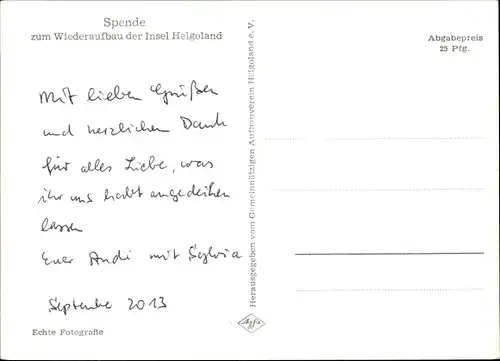 Spende
zum Wiederaufbau der Insel Helgoland
Mit lieben Grüßen
und herzlichen Dank
für alles Liebe, was
ihr uns habt angedeihen
lassen
Euer Andi mit Sylvia
September 2013
Echte Fotografie
Herausgegeben vom Gemeinnützigen Aufbauverein Helgoland e. V.
Agfa
Abgabepreis
25 Pfg.